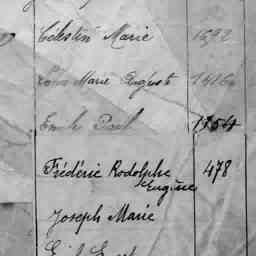 Célestin Marie 1692
Marie Auguste 1416
Emile Paul 1754
Frédéric Rodolphe 478
Eugène
Joseph Marie